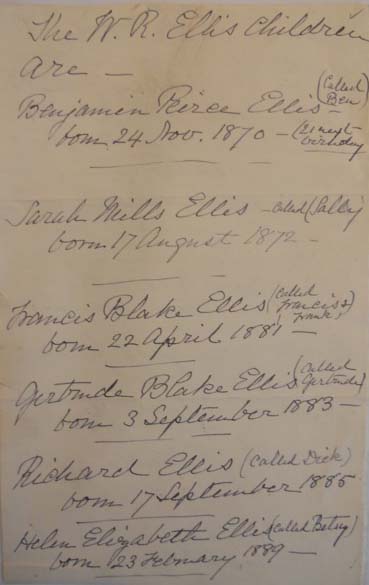 The W. R. Ellis Children
are —
Benjamin Peirce Ellis — (Called Ben)
born 24 Nov. 1870 — (21 next birthday
Sarah Mills Ellis — called (Sally)
born 17 August 1872 —
Francis Blake Ellis (called Francis & Frank)
born 22 April 1881 —
Gertrude Blake Ellis (called Gertrude)
born 3 September 1883 —
Richard Ellis (called Dick)
born 17 September 1885
Helen Elizabeth Ellis (called Betsy)
born 23 February 1889 —